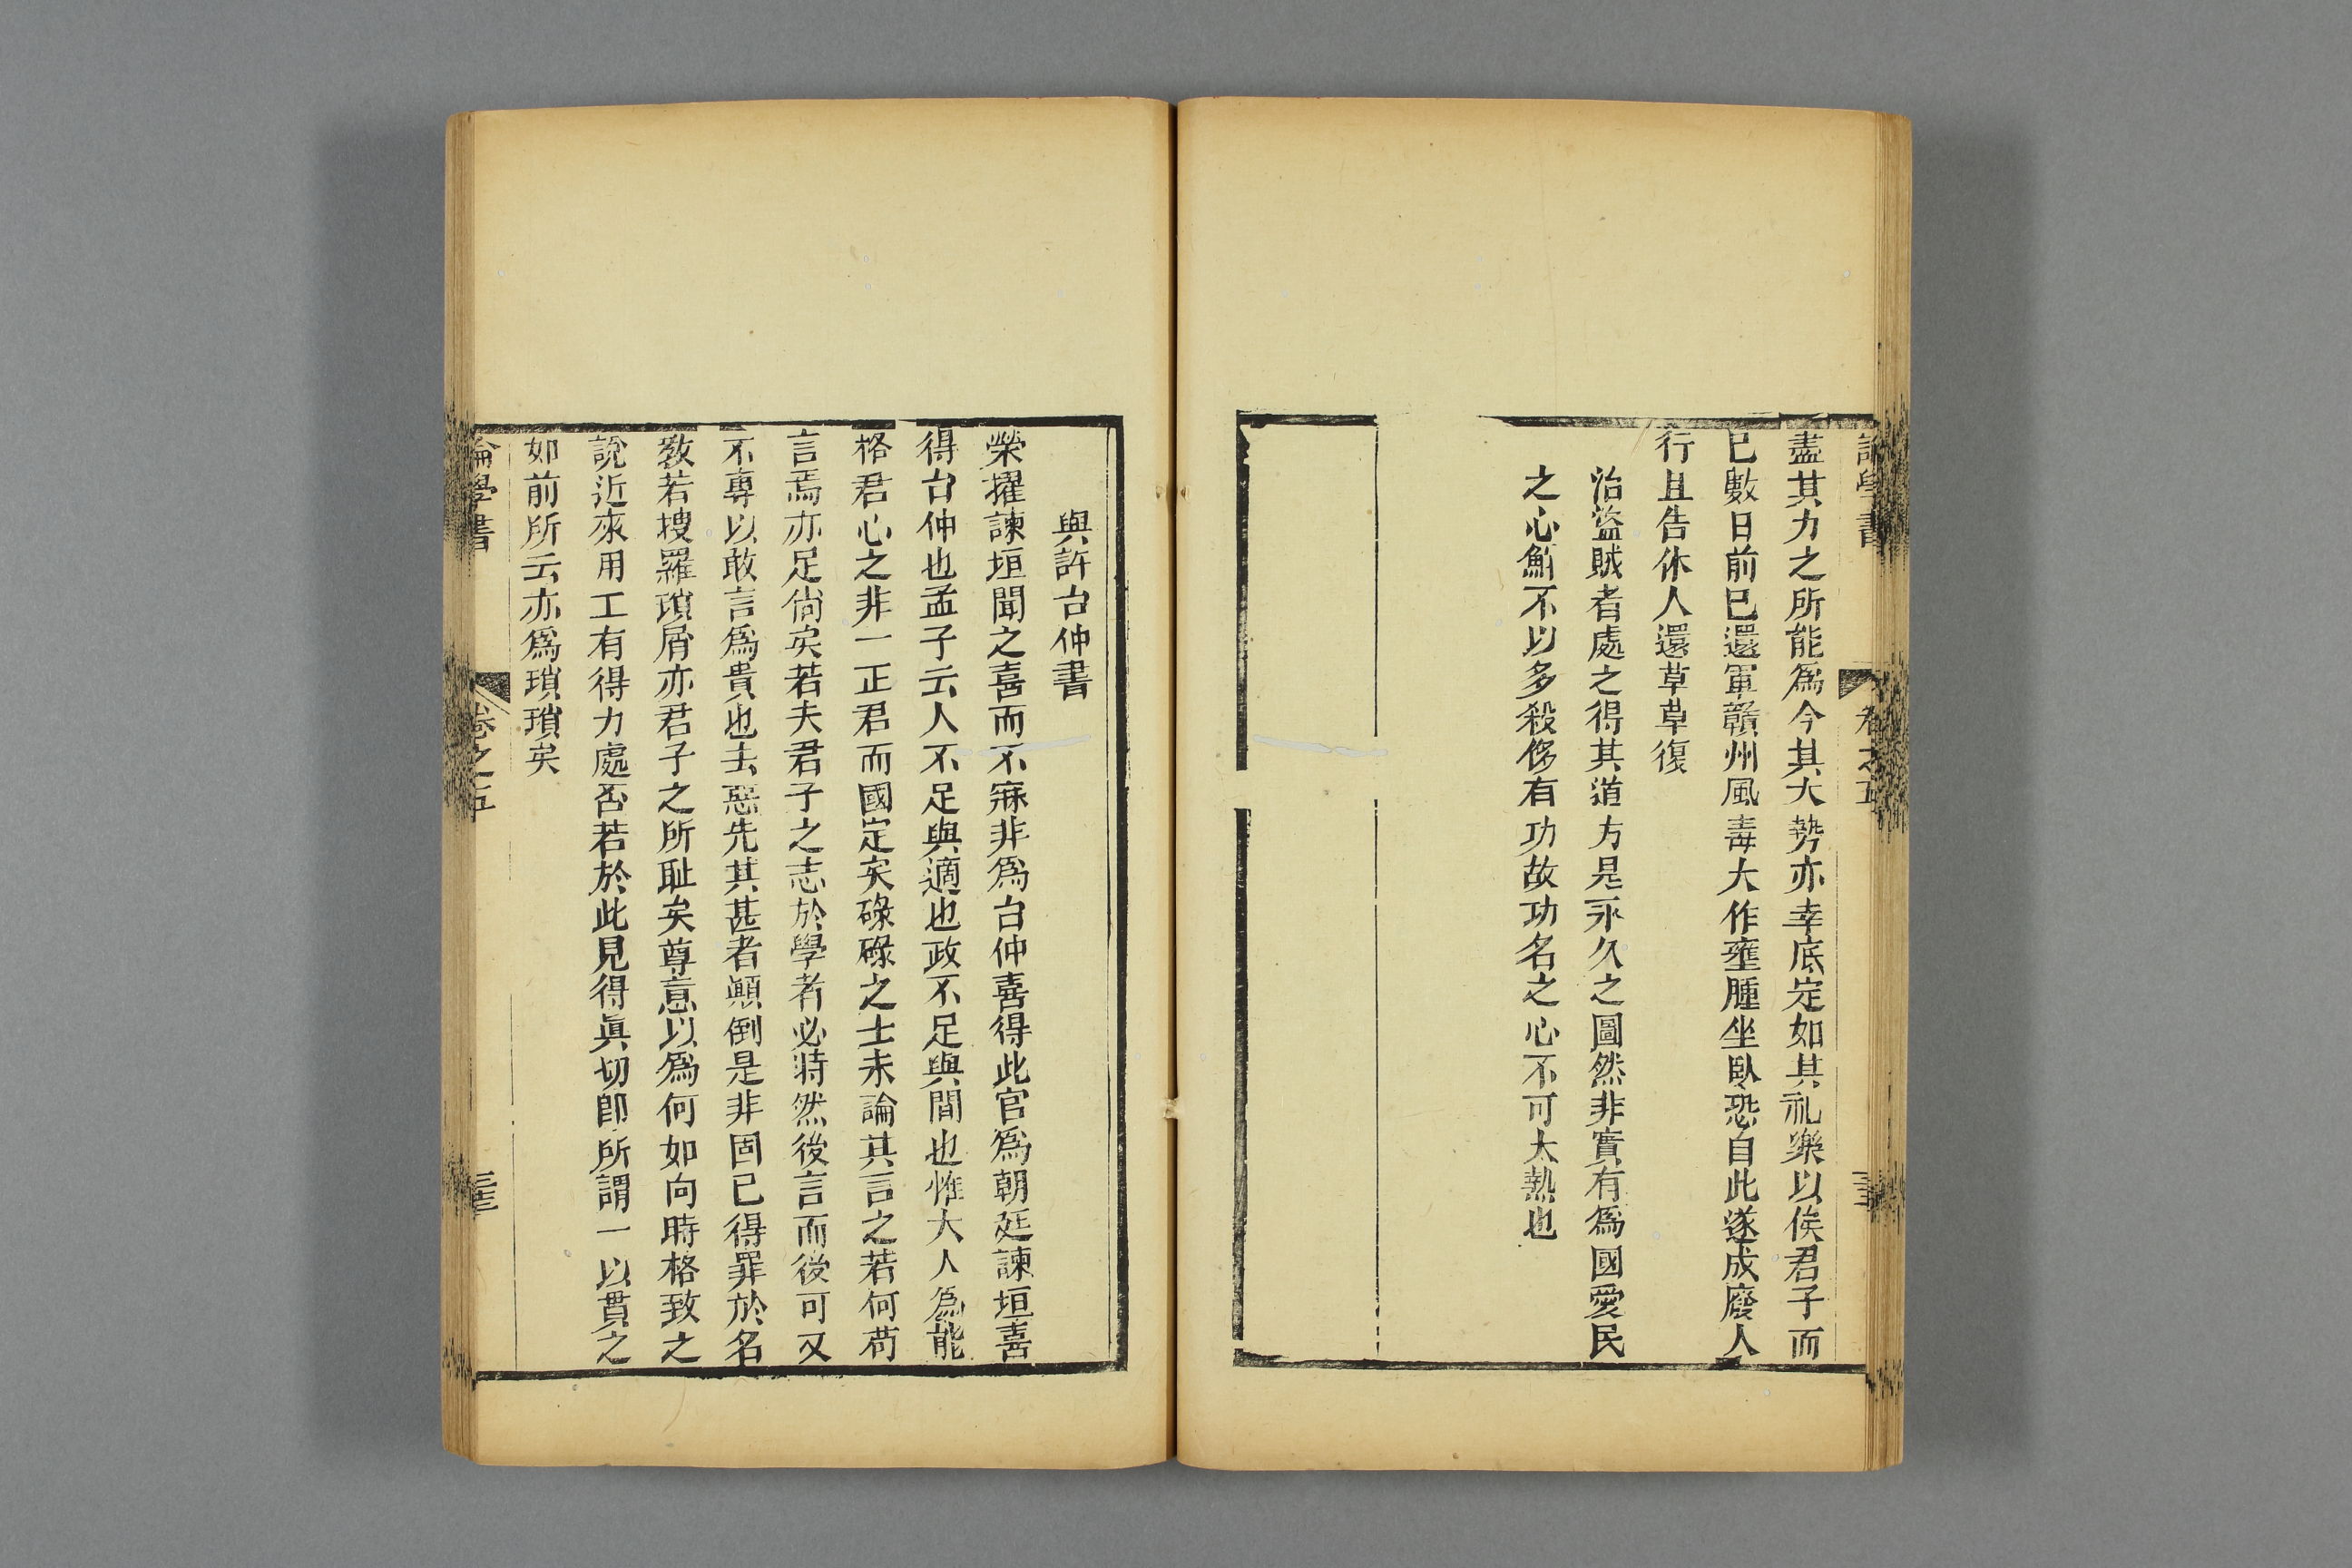 論學書 卷之五
盡其力之所能爲今其大勢亦幸底定如其礼樂以俟君子而
已數日前已還軍贛州風毒大作壅腫坐臥恐自此遂成廢人
行且告休人還草草復
治盜賊者處之得其道方是永久之圖然非實有爲國愛民
之心鮮不以多殺侈有功故功名之心不可太熱也
與許台仲書
榮擢諫垣聞之喜而不寐非爲台仲喜得此官爲朝廷諫垣喜
得台仲也孟子云人不足與適也政不足與間也惟大人爲能
格君心之非一正君而國定矣碌碌之士未論其言之若何苟
言焉亦足尙矣若夫君子之志於學者必時然後言而後可又
不專以敢言爲貴也去惡先其甚者顚倒是非固已得罪於名
敎若搜羅瑣屑亦君子之所耻矣尊意以爲何如向時格致之
說近來用工有得力處否若於此見得眞切卽所謂一以貫之
如前所云亦爲瑣瑣矣
論學書 卷之五